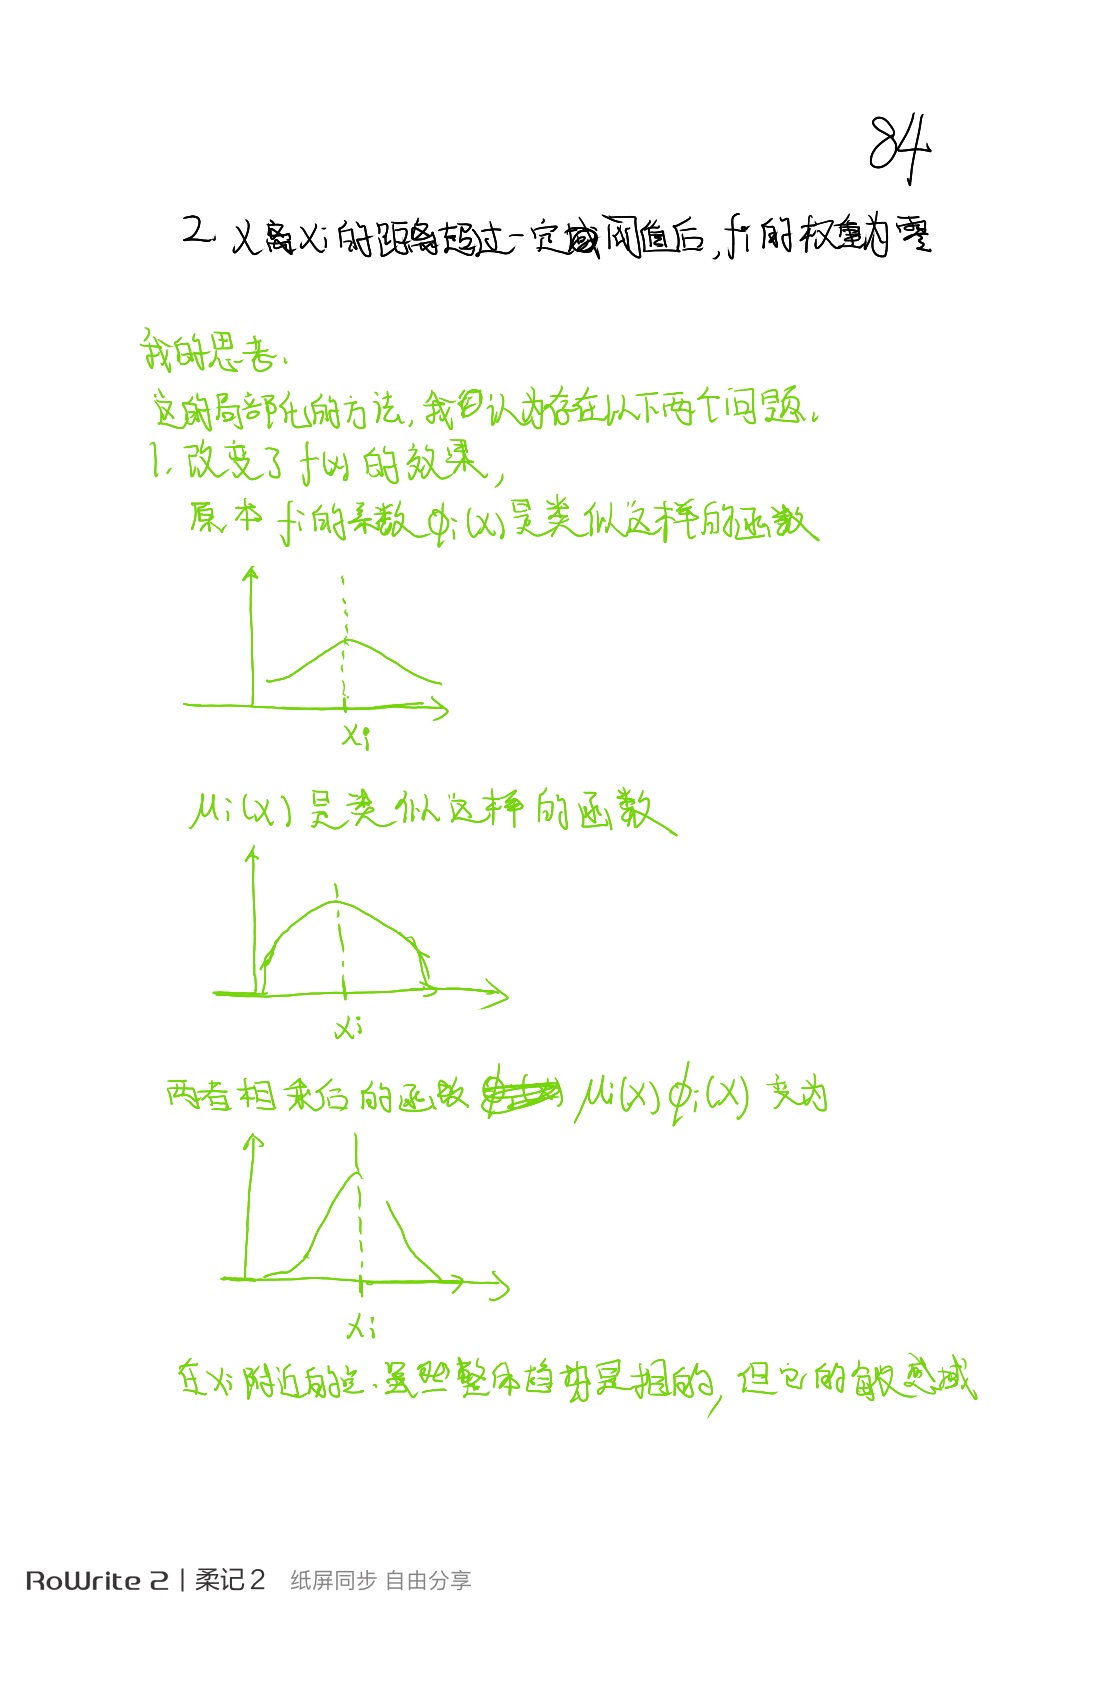 84
2. x离xi的距离超过一定域阀值后,fi的权重为零
我的思考.
这的局部化的方法,我认为存在以下两个问题.
1. 改变了f(x)的效果,
原本fi的系数φi(x)是类似这样的函数
xi
μi(x)是类似这样的函数
xi
两者相乘后的函数 μi(x)φi(x) 变为
xi
在xi附近的.虽然整体趋势是相的,但它的敏感域
RoWrite 2 | 柔记2 纸屏同步 自由分享